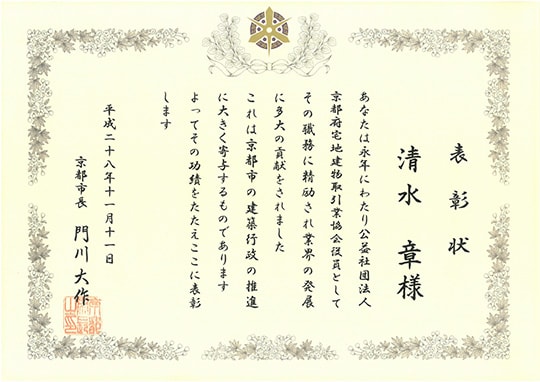 表彰状
清水 章様
あなたは永年にわたり公益社団法人
京都府宅地建物取引業協会役員として
その職務に精励され業界の発展
に多大の貢献をされました
これは京都市の建築行政の推進
に大きく寄与するものであります
よってその功績をたたえここに表彰
します
平成二十八年十一月十一日
京都市長 門川大作